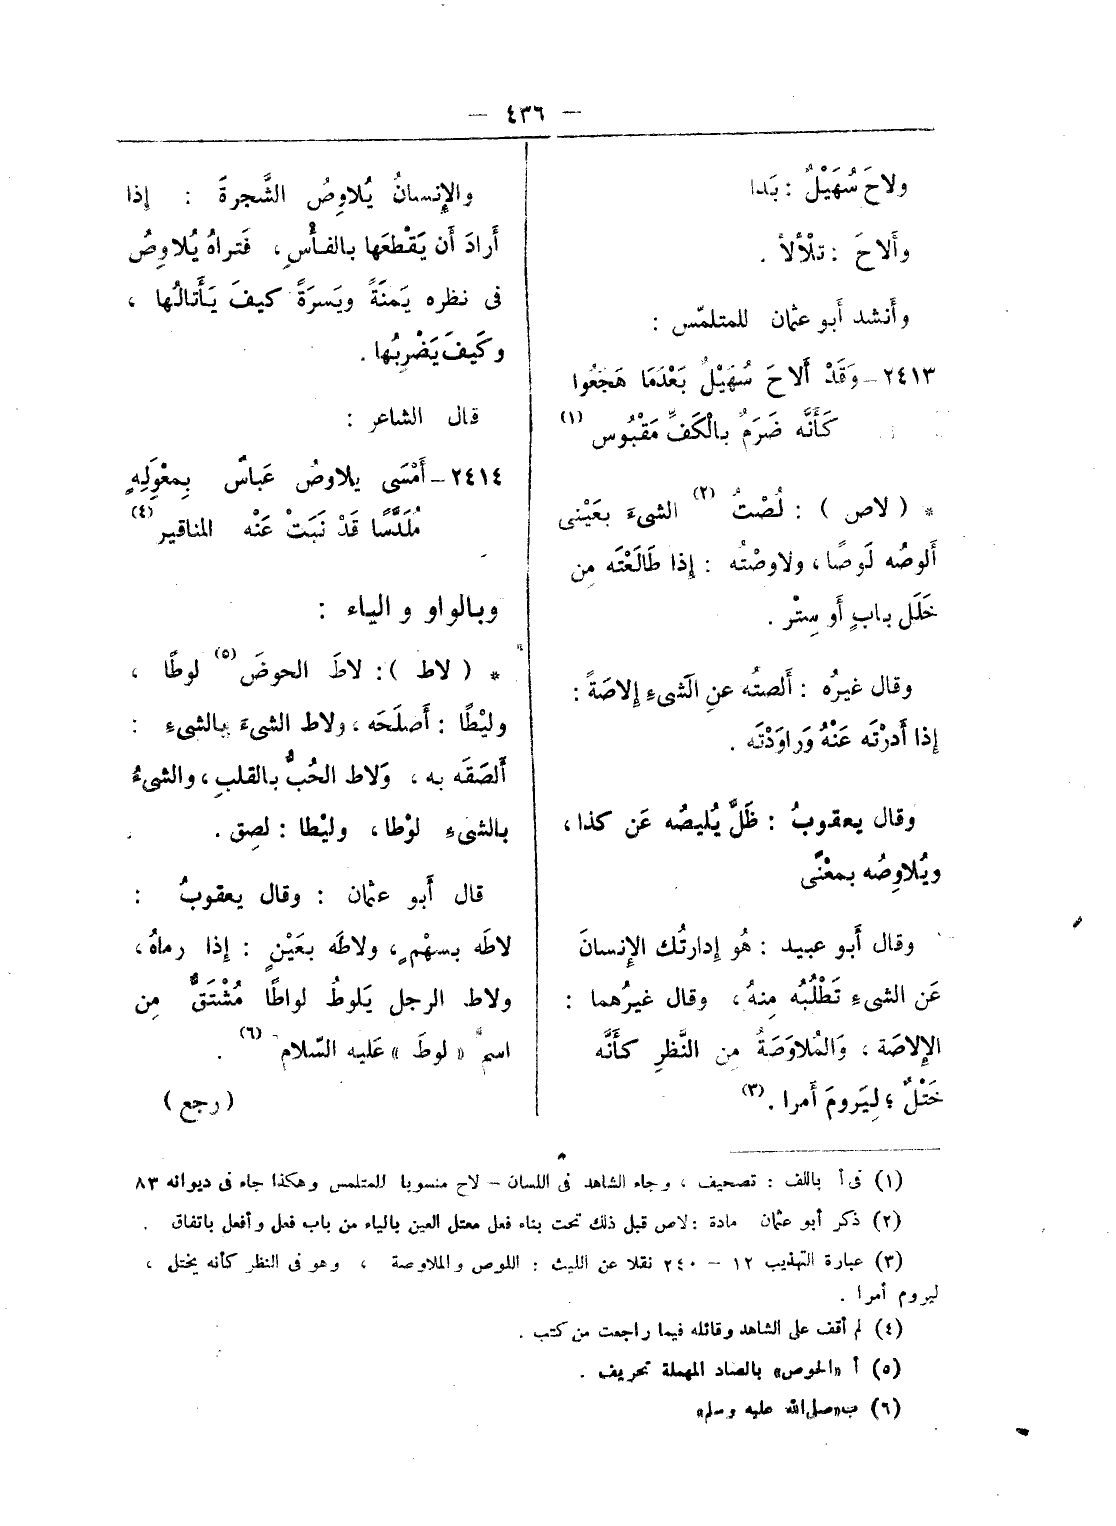 — ٤٣٦ —
ولاحَ سُهَيْلٌ : بَدا
وأَلاحَ : تلْأْلأ .
وأنشد أَبو عثمان للمتلمّس :
٢٤١٣ – وَقَدْ أَلاحَ سُهَيْلٌ بَعْدَمَا هَجَعُوا
كَأَنَّه ضَرَمٌ بالْكَفِّ مَقْبُوس (١)
* ( لاص ) : لُصْتُ (٢) الشىءَ بعَيْنى
أَلوصُه لَوصًا ، ولاوصْتُه : إذا طَالَعْتَه مِن
خَلَل بابٍ أَو سِتْر .
وقال غيرُه : أَلصتُه عنِ الشىءِ إلاصَةً :
إذا أَدرْتَه عَنْهُ وَراوَدْتَه .
وقال يعقوبُ : ظَلَّ يُليصُه عَن كذا ،
ويُلاوِصُه بمعْنًى
وقال أَبو عبيد : هُو إدارتُك الإنسانَ
عَن الشىءِ تَطْلُبُه مِنهُ ، وقال غيرُهما :
الإلاصَة ، وَالمُلاوَصَةُ مِن النَّظرِ كأَنَّه
خَتْلٌ ؛ لِيَرومَ أَمرا . (٣)
والإنسانُ يُلاوِصُ الشَّجرةَ : إذا
أَرادَ أَن يَقْطعَها بالفأْسِ ، فَتراهُ يُلاوِصُ
فى نظره يَمنَةً ويَسرَةً كيفَ يَأْتالُها ،
وكَيفَ يَضْرِبُها .
قال الشاعر :
٢٤١٤ – أَمْسَى يلاوصُ عَباسٌ بِمعْوَلِهِ
مُلَدَّسًا قَدْ نَبَتْ عَنْه المناقير (٤)
وبالواو والياء :
* ( لاط ) : لاطَ الحوضَ (٥) لوطًا ،
ولِيْطًا : أَصلَحَه ، ولاط الشىءَ بالشىءِ :
أَلصَقَه به ، وَلاط الحُبُّ بالقلبِ ، والشىءُ
بالشىءِ لوْطا ، ولِيْطا : لصِق .
قال أَبو عثمان : وقال يعقوبُ :
لاطَه بسهْمٍ ، ولاطَه بعَيْنٍ : إذا رماهُ ،
ولاط الرجل يَلوطُ لواطًا مُشْتَقٌّ مِن
اسم « لوطَ » عَليه السّلام (٦) .
( رجع )
(١) فى أ باللف : تصحيف ، وجاء الشاهد فى اللسان – لاح منسوبا للمتلمس وهكذا جاء فى ديوانه ٨٣
(٢) ذكر أبو عثمان مادة : لاص قبل ذلك تحت بناء فعل معتل العين بالياء من باب فعل وأفعل باتفاق .
(٣) عبارة التهذيب ١٢ – ٢٤٠ نقلا عن الليث : اللوص والملاوصة ، وهو فى النظر كأنه يختل ،
ليروم أمرا .
(٤) لم أقف على الشاهد وقائله فيما راجعت من كتب .
(٥) أ «الحوص» بالصاد المهملة تحريف .
(٦) ب «صلى الله عليه وسلم»